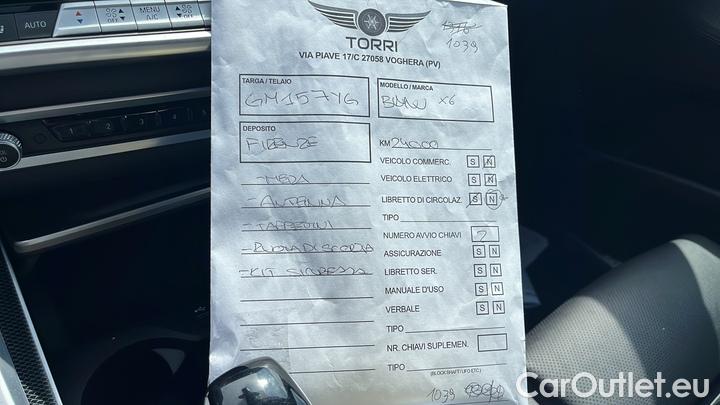 AUTO
OFF
MENU
A/C
OFF
1 2 3 4 5
VOL
TORRI
VIA PIAVE 17/C 27058 VOGHERA (PV)
1039
TARGA / TELAIO
GM157YG
MODELLO / MARCA
BMW X6
DEPOSITO
FIRENZE
KM 24000
VEICOLO COMMERC. S N
VEICOLO ELETTRICO S N
LIBRETTO DI CIRCOLAZ. S N
TIPO
NUMERO AVVIO CHIAVI 2
ASSICURAZIONE S N
LIBRETTO SER. S N
MANUALE D'USO S N
VERBALE S N
TIPO
NR. CHIAVI SUPPLEMEN.
TIPO
(BLOCKSHAFT / UFO ETC.)
- ANTENNA
- TAPPETINI
- RUOTA DI SCORTA
- KIT SICUREZZA
1039
CarOutlet.eu